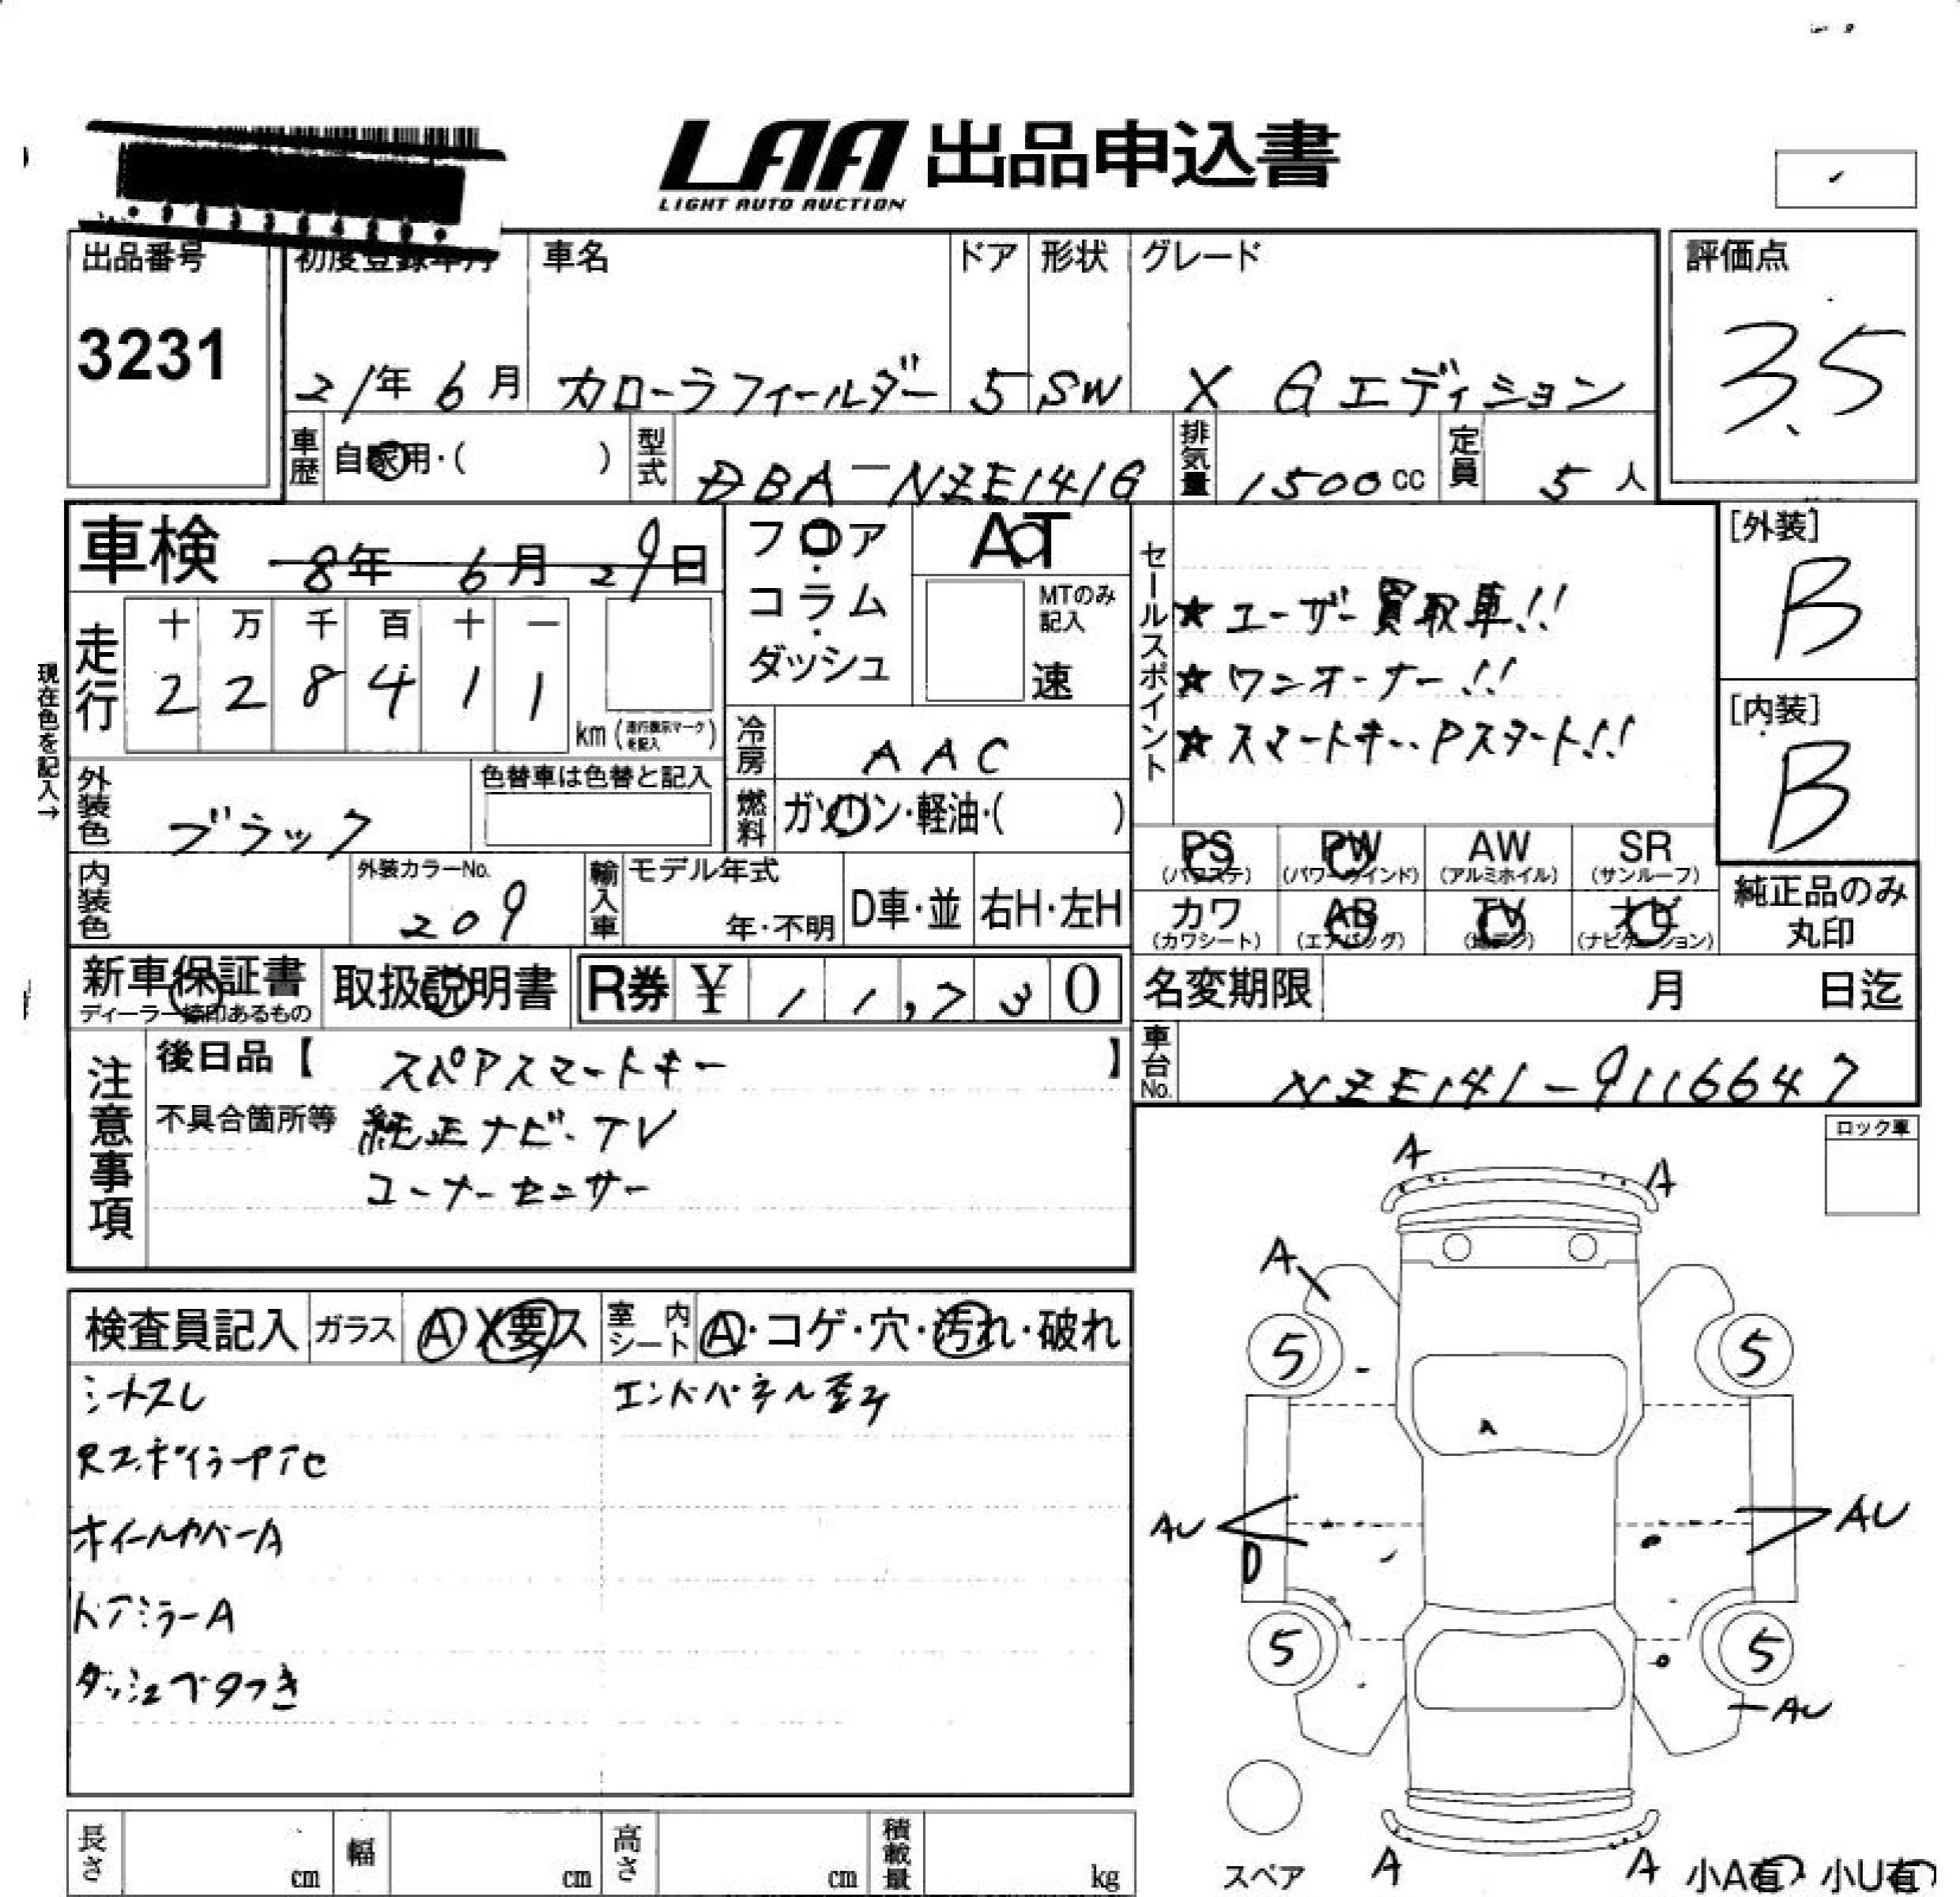 LAA 出品申込書
LIGHT AUTO AUCTION
出品番号 初度登録年月 車名 ドア 形状 グレード 評価点
3231 21年 6月 カローラフィールダー 5 SW X Gエディション 3.5
車歴 自家用・( ) 型式 DBA-NZE141G 排気量 1500cc 定員 5人
車検 8年 6月 29日
フロア・コラム・ダッシュ
AT
MTのみ記入
速
セールスポイント
★ユーザー買取車!!
★ワンオーナー!!
★スマートキー・Pスタート!!
[外装]
B
[内装]
B
現在色を記入→
走行 十 万 千 百 十 一
2 2 8 4 1 1 km (走行表示マークを記入)
冷房 AAC
外装色 ブラック 色替車は色替と記入
燃料 ガソリン・軽油・( )
内装色 外装カラーNo. 209
輸入車 モデル年式 年・不明 D車・並 右H・左H
PS (パワステ) PW (パワーウインド) AW (アルミホイル) SR (サンルーフ)
カワ (カワシート) AB (エアバッグ) TV (地デジ) ナビ (ナビゲーション)
純正品のみ丸印
新車保証書 ディーラー捺印あるもの 取扱説明書 R券 ¥ 11,730
名変期限 月 日迄
車台No. NZE141-9116647
注意事項
後日品【 スペアスマートキー 】
不具合箇所等 純正ナビ・TV
コーナーセンサー
ロック車
検査員記入 ガラス A X要ス 室内シート A・コゲ・穴・汚れ・破れ
シートスレ エンドパネル歪み
ホイールカバーA
ドアミラーA
ダッシュベタつき
A A
A
5 5
AU AU
D
5 5
AU
A A
スペア
小A有 小U有
長さ cm 幅 cm 高さ cm 積載量 kg